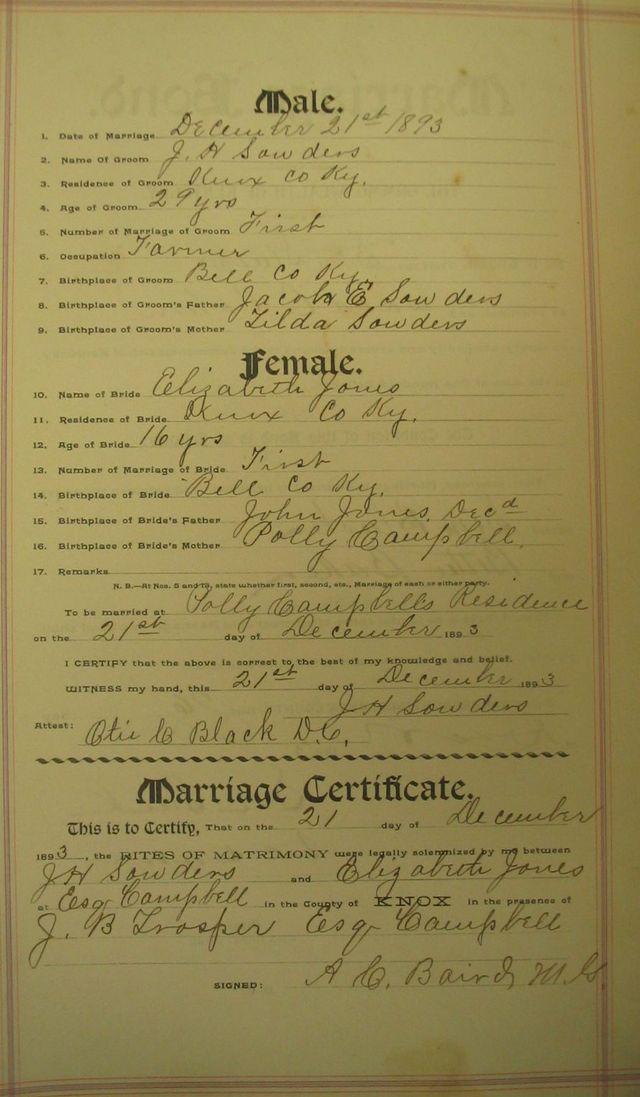 Male.
1. Date of Marriage December 21st 1893
2. Name Of Groom J. H Sowders
3. Residence of Groom Knox Co Ky.
4. Age of Groom 29 yrs
5. Number of Marriage of Groom First
6. Occupation Farmer
7. Birthplace of Groom Bell Co Ky.
8. Birthplace of Groom's Father Jacob E Sowders
9. Birthplace of Groom's Mother Tilda Sowders
Female.
10. Name of Bride Elizabeth Jones
11. Residence of Bride Knox Co Ky.
12. Age of Bride 16 yrs
13. Number of Marriage of Bride First
14. Birthplace of Bride Bell Co Ky.
15. Birthplace of Bride's Father John Jones. Decd
16. Birthplace of Bride's Mother Polly Campbell.
17. Remarks
N. B.—At Nos. 5 and 13, state whether first, second, etc., Marriage of each or either party.
To be married at Polly Campbells Residence
on the 21st day of December 1893
I CERTIFY that the above is correct to the best of my knowledge and belief.
WITNESS my hand, this 21st day of December, 1893
J H Sowders
Attest: Black D.C.
Marriage Certificate.
This is to Certify, That on the 21 day of December
1893, the RITES OF MATRIMONY were legally solemnized by me between
J H Sowders and Elizabeth Jones
at Esq Campbell in the County of KNOX in the presence of
J. B Trosper Esq Campbell
SIGNED: A C. Baird M.G.